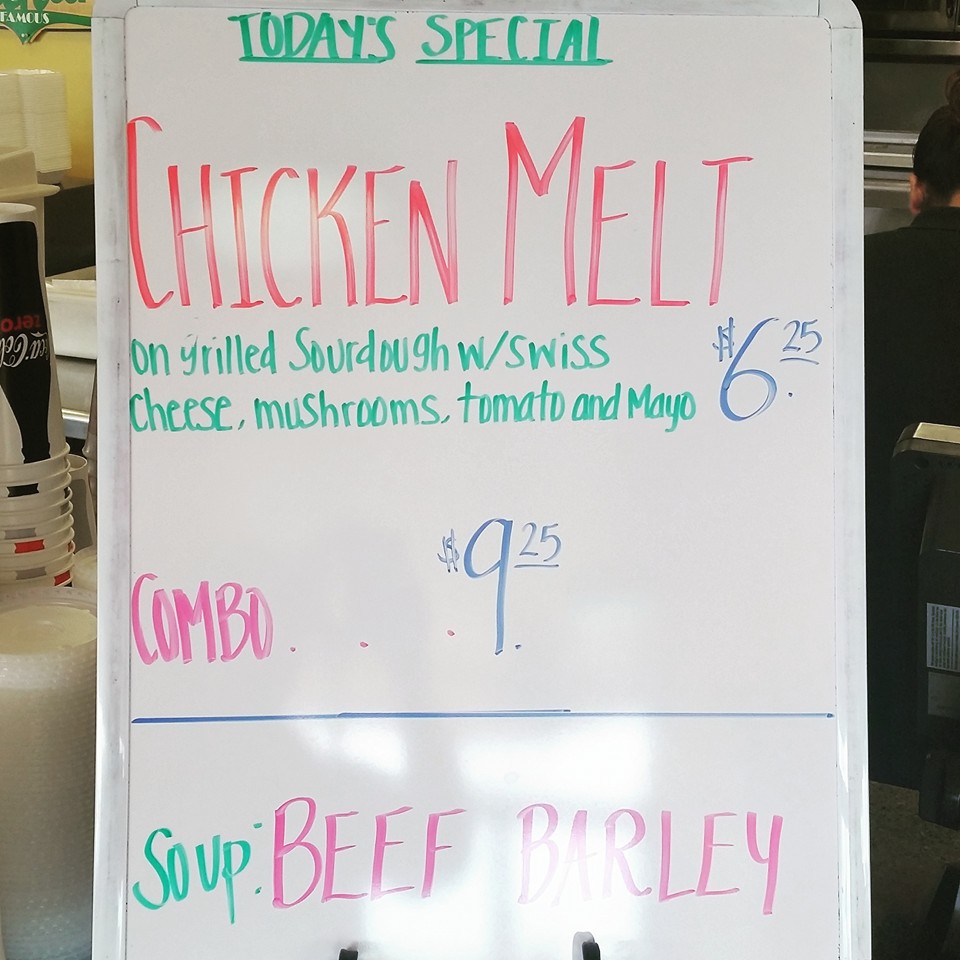 FAMOUS
TODAY'S SPECIAL
CHICKEN MELT
on grilled Sourdough w/swiss
Cheese, mushrooms, tomato and Mayo
$6.25
$9.25
COMBO . . .
Soup: BEEF BARLEY
Coca-Cola
zero